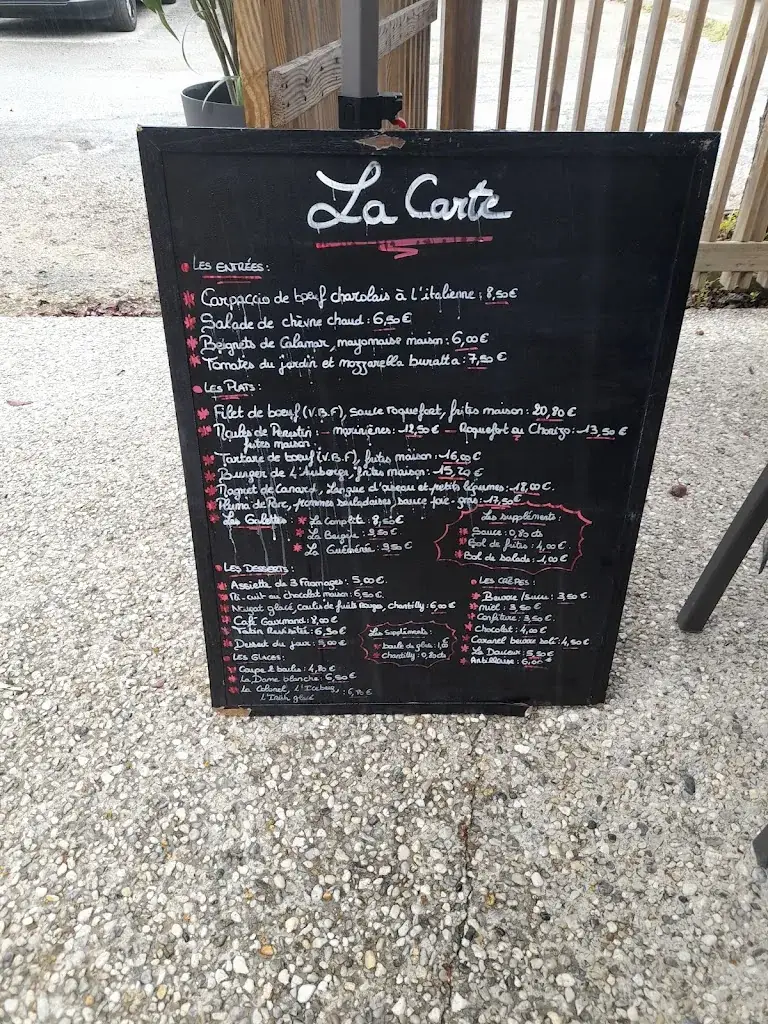 La Carte
LES ENTRÉES :
Carpaccio de bœuf charolais à l'italienne : 8,50€
Salade de chèvre chaud : 6,50€
Beignets de Calamar, mayonnaise maison : 6,00€
Tomates du jardin et mozzarella buratta : 7,50€
LES PLATS :
Filet de bœuf (V.B.F), sauce roquefort, frites maison : 20,80€
Moules de Penestin : - marinières : 12,50€ - Roquefort ou Chorizo : 13,50€
frites maison :
Tartare de bœuf (V.B.F), frites maison : 16,00€
Burger de l'Auberge, frites maison : 15,20€
Magret de Canard, Langue d'oiseau et petits légumes : 18,00€
Pluma de Porc, pommes sarladaises sauce foie-gras : 17,50€
Les Galettes : La Complète : 8,50€
La Bergère : 9,50€
La Guéménée : 9,50€
Les suppléments :
Sauce : 0,80cts
Bol de frites : 4,00€
Bol de salade : 1,00€
LES DESSERTS :
Assiette de 3 Fromages : 5,00€
Mi-cuit au chocolat maison : 6,50€
Nougat glacé, coulis de fruits Rouges, chantilly : 6,00€
Café Gourmand : 8,00€
Tatin Revisitée : 6,50€
Dessert du jour : 3,00€
Les Suppléments :
boule de glace :
chantilly : 0,80cts
LES GLACES :
Coupe 2 boules : 4,80€
La Dame blanche : 6,50€
La Colonel, L'Iceberg,
L'Irish glacé : 6,70€
LES CRÊPES :
Beurre / sucre : 3,50€
miel : 3,50€
Confiture : 3,50€
Chocolat : 4,00€
Caramel beurre salé : 4,50€
La Douceur : 5,50€
Antillaise : 6,00€